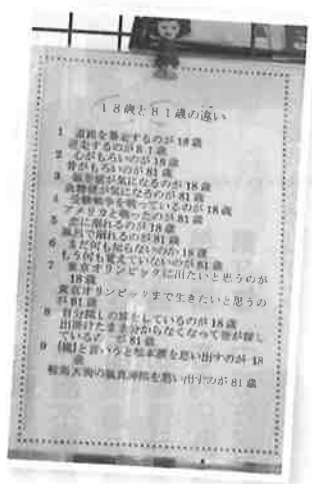 18歳と81歳の違い
1 道路を暴走するのが18歳
逆走するのが81歳
2 心がもろいのが18歳
骨がもろいのが81歳
3 偏差値が気になるのが18歳
血糖値が気になるのが81歳
4 受験戦争を戦っているのが18歳
アメリカと戦ったのが81歳
5 恋に溺れるのが18歳
風呂で溺れるのが81歳
6 まだ何も知らないのが18歳
もう何も覚えていないのが81歳
7 東京オリンピックに出たいと思うのが
18歳
東京オリンピックまで生きたいと思うの
が81歳
8 自分探しの旅をしているのが18歳
出掛けたまま分からなくなって皆が探し
ているのが81歳
9 「嵐」と言うと松本潤を思い出すのが18
歳
鞍馬天狗の嵐寛寿郎を思い出すのが81歳